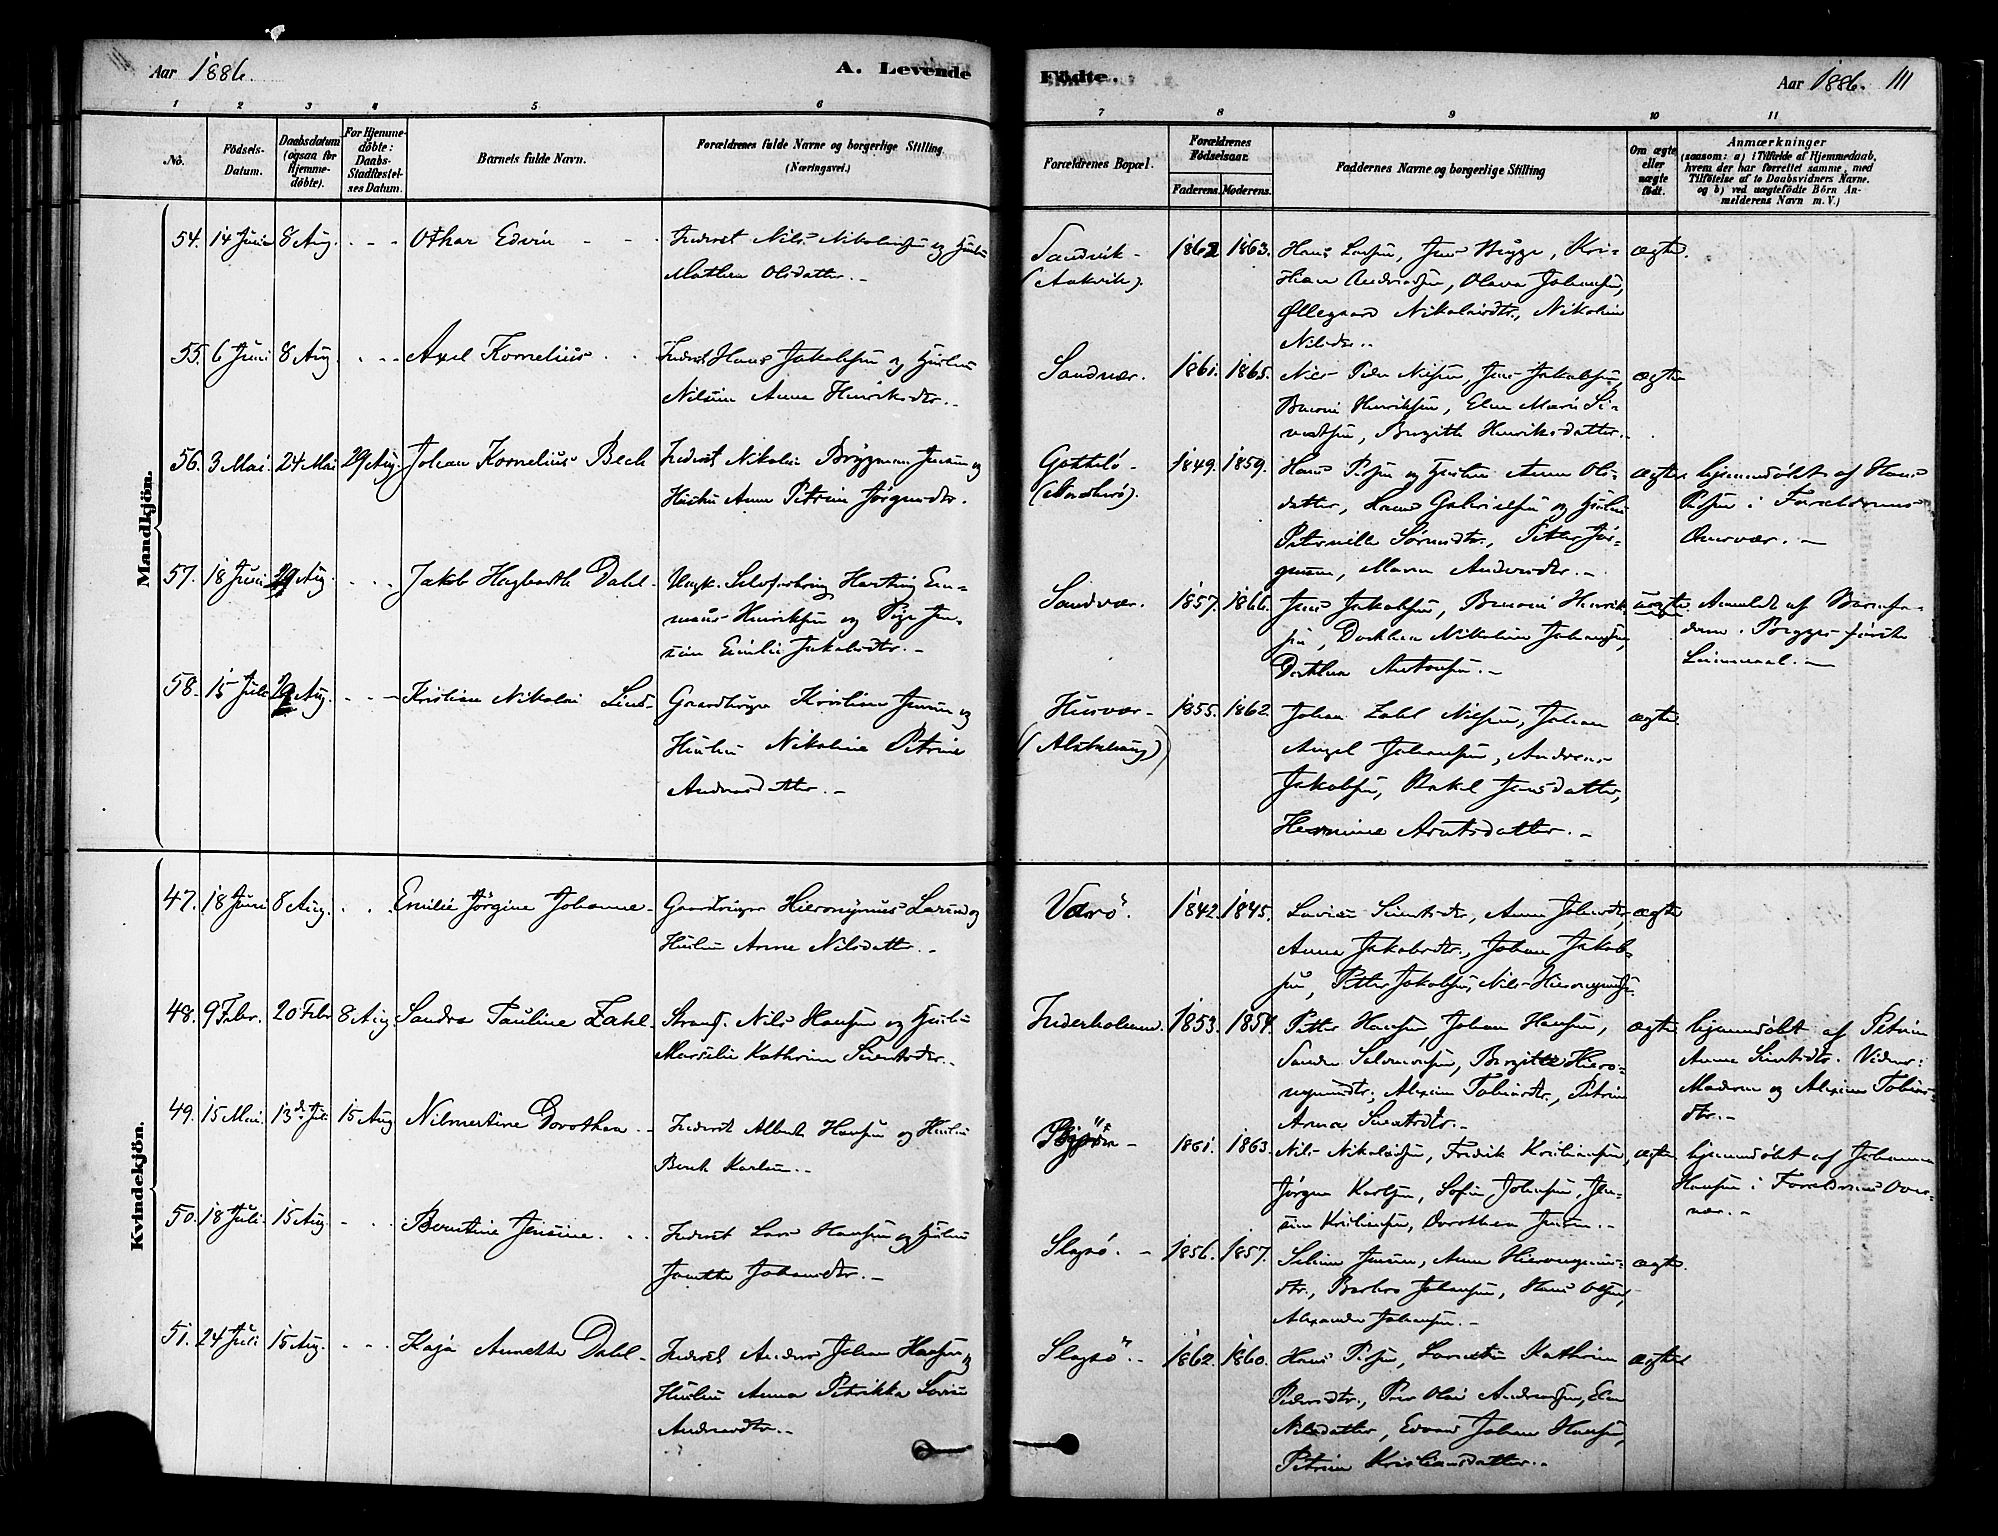 Aar 1886.
A. Levende
Fødte.
Aar 1886. 111
1 2 3 4 5 6 7 8 9 10 11
No.
Fødsels-
Datum.
Daabsdatum
(ogsaa for
Hjemme-
døbte).
For Hjemme-
døbte:
Daabs-
Stadfæstel-
ses Datum.
Barnets fulde Navn.
Forældrenes fulde Navne og borgerlige Stilling
(Næringsvei.)
Forældrenes Bopæl.
Forældrenes
Fødselsaar.
Faderens. Moderens.
Faddernes Navne og borgerlige Stilling
Om ægte
eller
uægte
født.
Anmærkninger
(saasom: a) i Tilfælde af Hjemmedaab,
hvem der har forrettet samme, med
Tilføielse af to Daabsvidners Navne.
og b) ved uægtefødte Børn An-
melderens Navn m. V.)
Mandkjön.
54. 14 Juni 8 Aug. - - - Othar Edvin - - Inderst Nils Nikolaisen og Hustru
Mathea Olsdatter. -
Sandvik -
(Aakvik).
1862 1863.
Hans Larsen, Jens Brygge, Kri-
stian Andreassen, Olava Johansen,
Øllegaard Nikolaisdtr., Nikoline
Nilsdtr. -
ægte.
55. 6 Juni 8 Aug. - - - Axel Kornelius. - - Inderst Hans Jakobsen og Hustru
Nilsine Anna Henriksdtr. -
Sandvær. 1861. 1865.
Nils Peder Nilsen, Jens Jakobsen,
Henriksen, Elen Marie Si-
vertsen, Birgitte Henriksdatter. -
ægte
56. 3 Mai. 24 Mai 29 Aug. Johan Kornelius Bech Inderst Nikolai Jensen og
Hustru Anne Petrine Jørgensdtr.
1849. 1859.
Hans og Hustru Anna Ols-
datter, Hans Gabrielsen og Hustru
Peternille Sørensdtr., Petter Jør-
gensen, Maren Andersdtr. -
ægte
hjemmedøbt af Hans
i Forældrenes
Overvær. -
57. 18 Juni 29 Aug. - - - Jakob Hagbarth Dahl - Ungk. Selvfostring Hartvig Em-
maus Henriksen og Pige Jen-
sine Emilie Jakobsdtr. -
Sandvær. 1857. 1866.
Jens Jakobsen, Henrik-
sen, Dorthea Nikoline Johansen,
Dorthea Antonsen. -
uægte.
Anmeldt af Barnefa-
deren. Begges første
Leiermaal. -
58. 15 Juli 29 Aug. - - - Kristian Nikolai Lind - Gaardbruger Kristian Jensen og
Hustru Nikoline Petrine
Andersdatter. -
Husvær -
(Alstahaug)
1855. 1862.
Johan Zahl Nilsen, Johan
Angel Johansen, Andreas
Jakobsen, Rakel Jensdatter,
Hermine Arntsdatter. -
ægte
Kvindekjön.
47. 18 Juni 8 Aug. - - Emilie Jørgine Johanne - Gaardbruger Hieronymus Larsen og
Hustru Anne Nilsdatter. -
Værø. 1842. 1845.
Lavina Sivertsdtr., Anna Johansdtr.,
Anna Jakobsdtr., Johan Jakob-
sen, Petter Jakobsen, Nils Hieronymusen.
ægte
48. 9 Febr. 20 Febr 8 Aug. Sandra Pauline Zahl - Strands. Nils Hansen og Hustru
Marselie Kathrine Sivertsdtr. -
Inderholmen. 1853. 1854.
Petter Hansen, Johan Hansen,
Sander Salomonsen, Birgitte Hiero-
nymusdtr., Alexine Tobiasdtr., Petrine
Anna Sivertsdtr. -
ægte
hjemmedøbt af Petrine
Anna Sivertsdtr. Vidner:
Moderen og Alexine Tobias-
dtr. -
49. 15 Mai. 13de Juli 15 Aug Nilmertine Dorothea - Inderst Albert Hansen og Hustru
Berit Karlsen. -
1861. 1863.
Nils Nikolaisen, Fredrik Kristiansen,
Jørgen Karlsen, Sofie Johansen, Jen-
sine Kristiansen, Dorothea Jensen. -
ægte.
hjemmedøbt af Johannes
Hansen i Forældrenes Over-
vær. -
50. 18 Juli. 15 Aug. - - - Berntine Jensine. - - Inderst Lars Hansen og Hustru
Jonette Johansdtr. -
Slapø. - 1856. 1857.
Jensen, Anna Hieronymus-
dtr., Barbro Johansen, Hans Olsen,
Alexander Johansen. -
ægte.
51. 24 Juli 15 Aug. - - - Kaja Annette Dahl - Inderst Anders Johan Hansen og
Hustru Anna Petrikka
Andersdtr. -
Slapø. - 1862. 1860.
Hans Lorentse Kathrine
Pedersdtr., Peder Olai Andersen, Elen
Nilsdatter, Edvard Johan Hansen,
Petrine Kristiansdatter. -
ægte